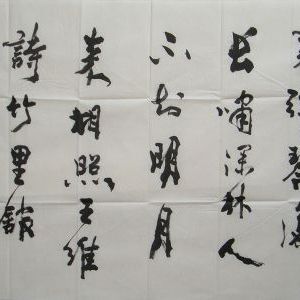 彈琴復
長嘯深林人
不知明月
来相照王維
詩竹里館